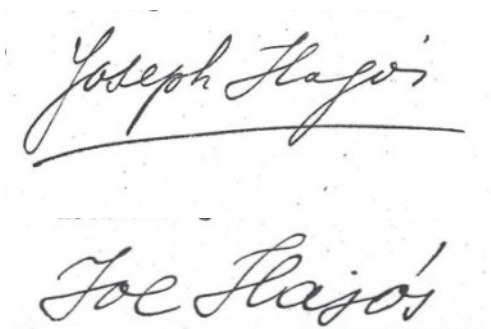 Joseph Hajós
Joe Hajós